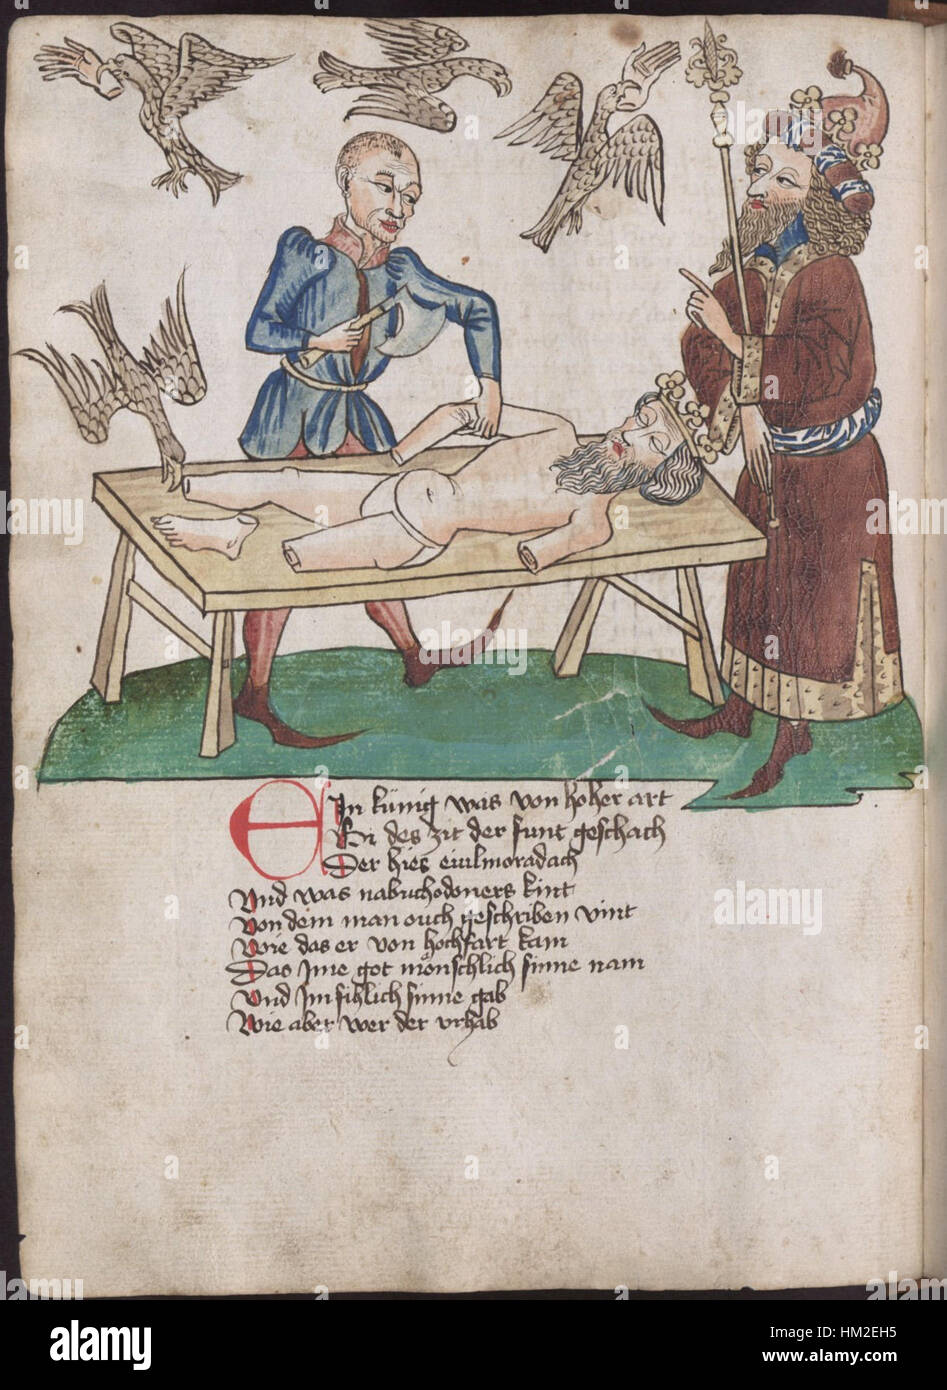 EIn künig was von hoher art
Bi des zit der funt geschach
Der hies evilmoradach
Vnd was nabuchodoners kint
Von dem man ouch geschriben vint
Wie das er von hochfart kam
Das Ime got mönschlich sinne nam
Vnd Im fihlich sinne gab
Wie aber wer der vrhab
alamy
Image ID: HM2EH5
www.alamy.com